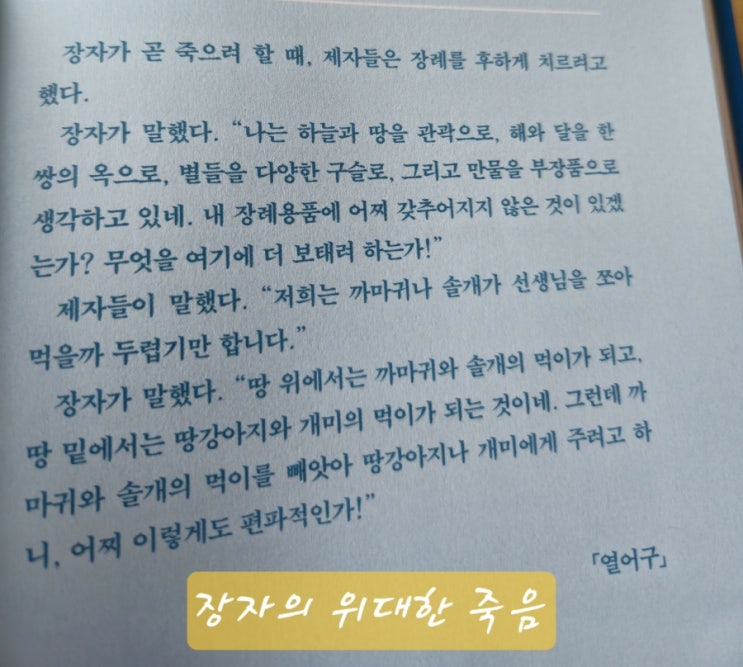 장자가 곧 죽으려 할 때, 제자들은 장례를 후하게 치르려고
했다.
장자가 말했다. “나는 하늘과 땅을 관곽으로, 해와 달을 한
쌍의 옥으로, 별들을 다양한 구슬로, 그리고 만물을 부장품으로
생각하고 있네. 내 장례용품에 어찌 갖추어지지 않은 것이 있겠
는가? 무엇을 여기에 더 보태려 하는가!”
제자들이 말했다. “저희는 까마귀나 솔개가 선생님을 쪼아
먹을까 두렵기만 합니다.”
장자가 말했다. “땅 위에서는 까마귀와 솔개의 먹이가 되고,
땅 밑에서는 땅강아지와 개미의 먹이가 되는 것이네. 그런데 까
마귀와 솔개의 먹이를 빼앗아 땅강아지나 개미에게 주려고 하
니, 어찌 이렇게도 편파적인가!”
「열어구」
장자의 위대한 죽음